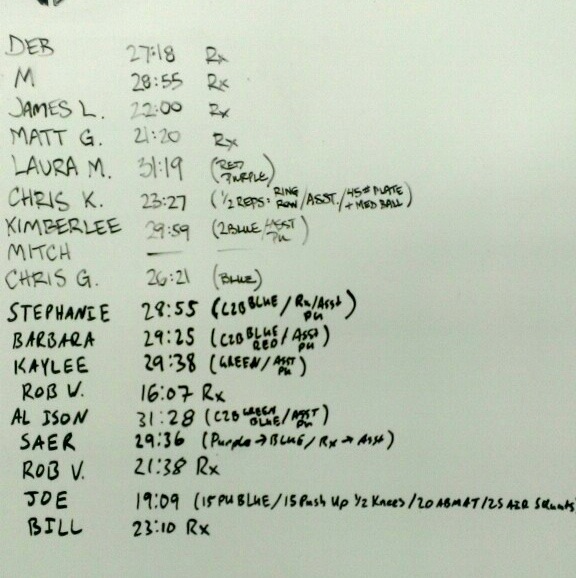 DEB 27:18 Rx
M 28:55 Rx
JAMES L. 22:00 Rx
MATT G. 21:20 Rx
LAURA M. 31:19 (RED PURPLE)
CHRIS K. 23:27 (1/2 REPS: RING ROW/ASST./45# PLATE + MED BALL)
KIMBERLEE 29:59 (2BLUE/ASST PU)
MITCH —
CHRIS G. 26:21 (BLUE)
STEPHANIE 28:55 (C2B BLUE/Rx/Asst PU)
BARBARA 29:25 (C2B BLUE RED/Asst PU)
KAYLEE 29:38 (GREEN/ASST PU)
ROB V. 16:07 Rx
ALISON 31:28 (C2B GREEN BLUE/ASST PU)
SAER 29:36 (Purple → BLUE/Rx → Asst)
ROB V. 21:38 Rx
JOE 19:09 (15 PU BLUE/15 Push Up 1/2 Knees/20 ABMAT/25 AIR Squats
BILL 23:10 Rx